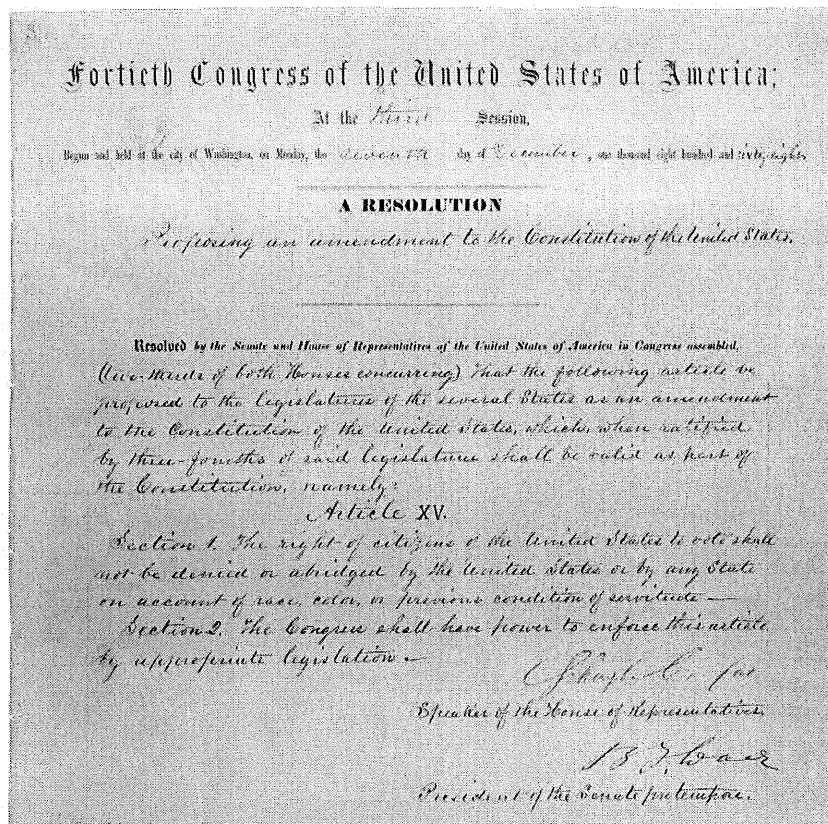 Fortieth Congress of the United States of America;
At the third Session,
Begun and held at the city of Washington, on Monday, the seventh day of December, one thousand eight hundred and sixty-eight.
A RESOLUTION
Proposing an amendment to the Constitution of the United States.
Resolved by the Senate and House of Representatives of the United States of America in Congress assembled,
(two-thirds of both Houses concurring) That the following article be
proposed to the legislatures of the several States as an amendment
to the Constitution of the United States, which, when ratified
by three-fourths of said legislatures shall be valid as part of
the Constitution, namely:
Article XV.
Section 1. The right of citizens of the United States to vote shall
not be denied or abridged by the United States or by any State
on account of race, color, or previous condition of servitude—
Section 2. The Congress shall have power to enforce this article
by appropriate legislation—
Schuyler Colfax
Speaker of the House of Representatives.
B F Wade
President of the Senate pro tempore.